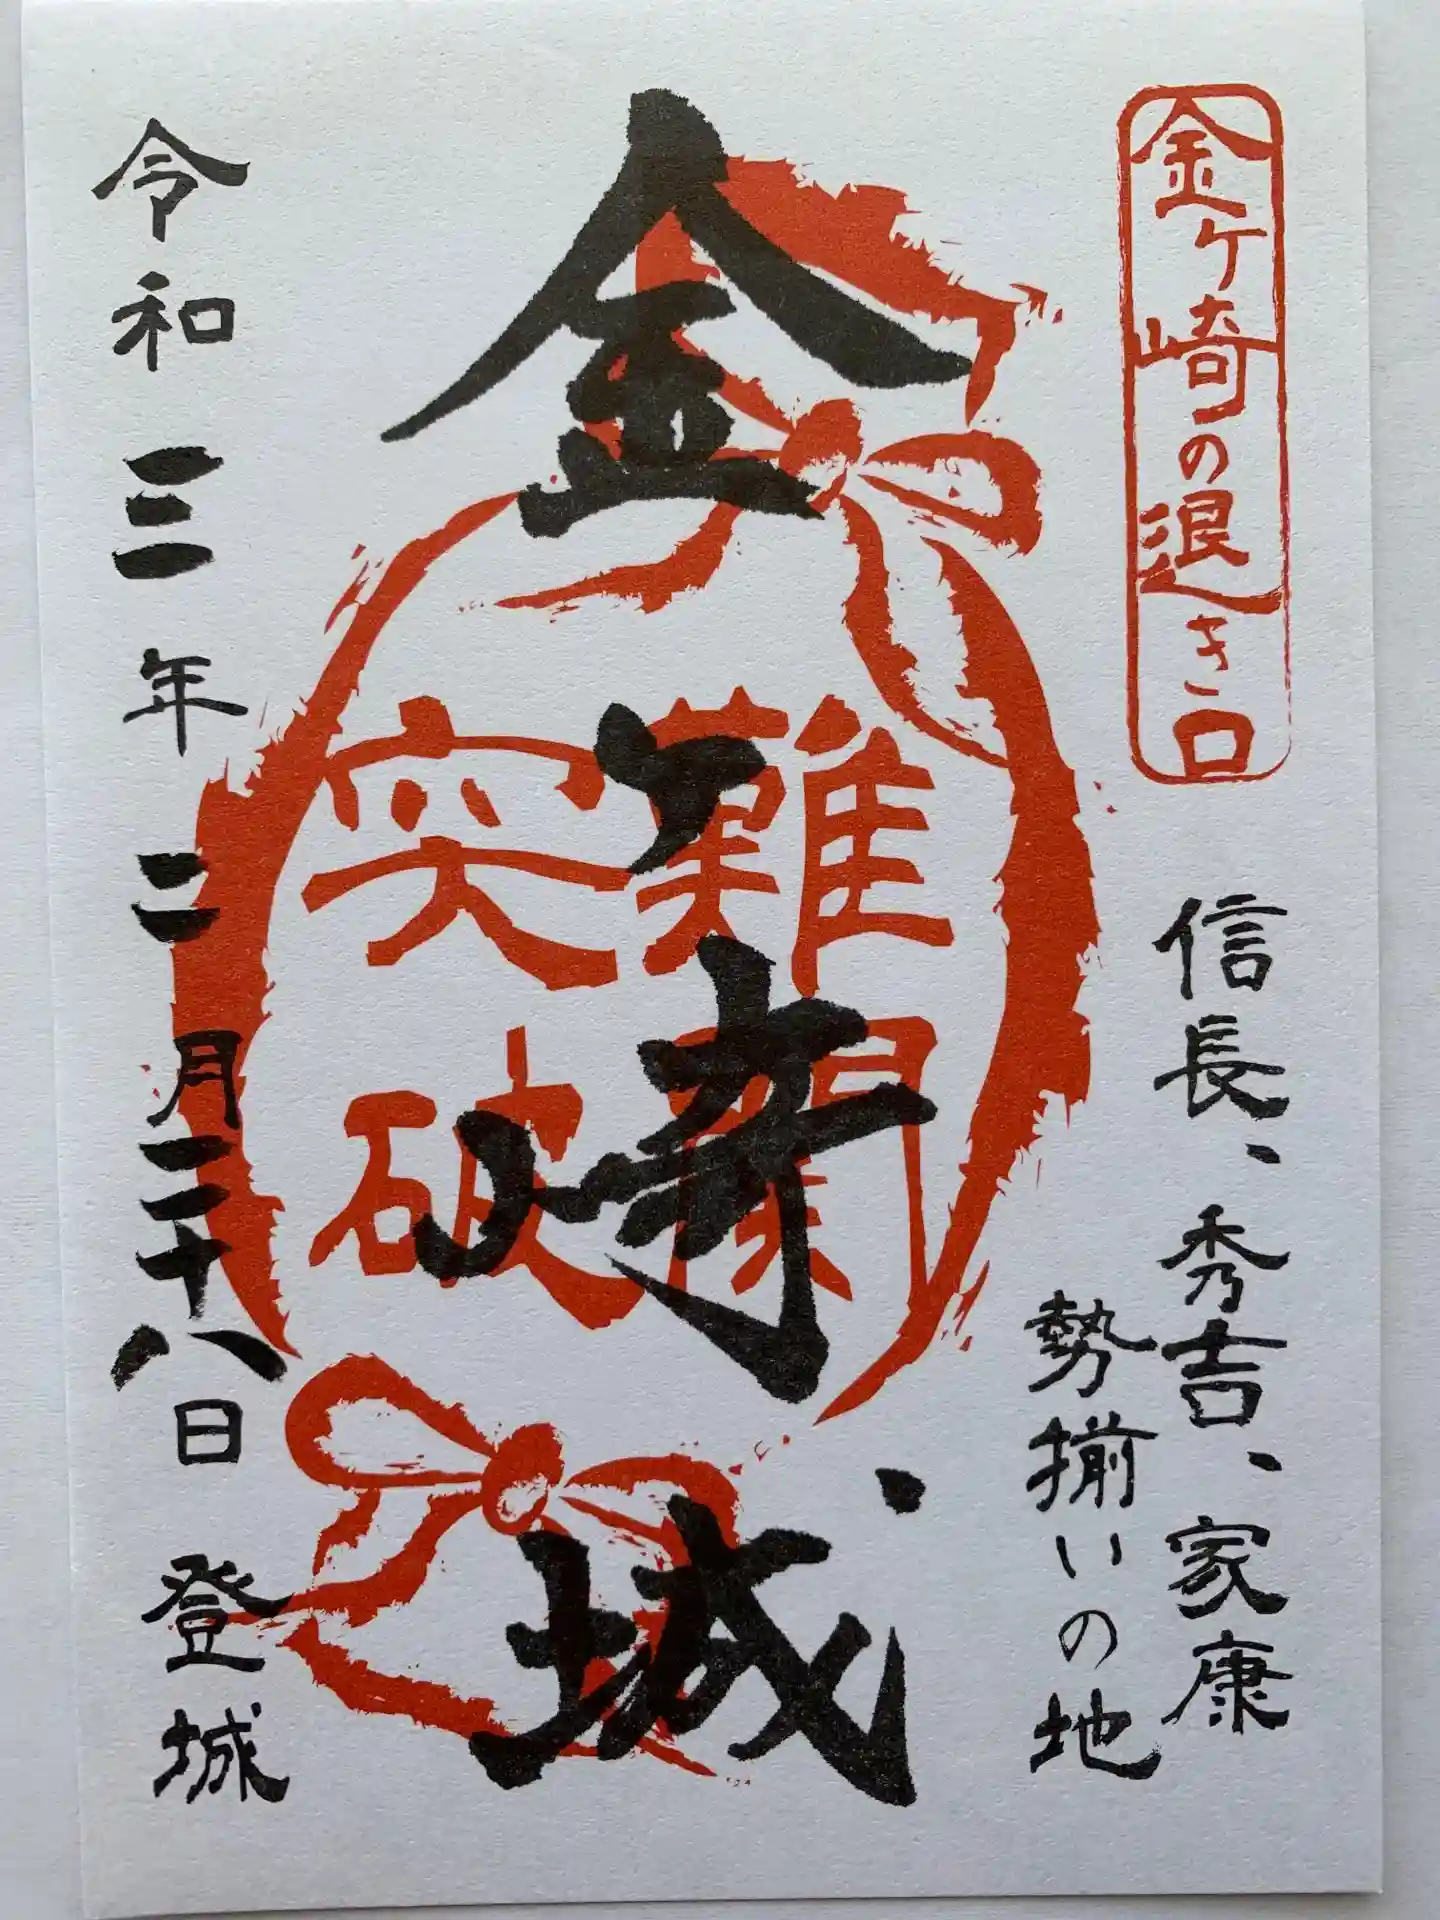 金ケ崎の退き口
信長、秀吉、家康
勢揃いの地
金ケ崎城
難関
突破
令和三年二月二十八日登城